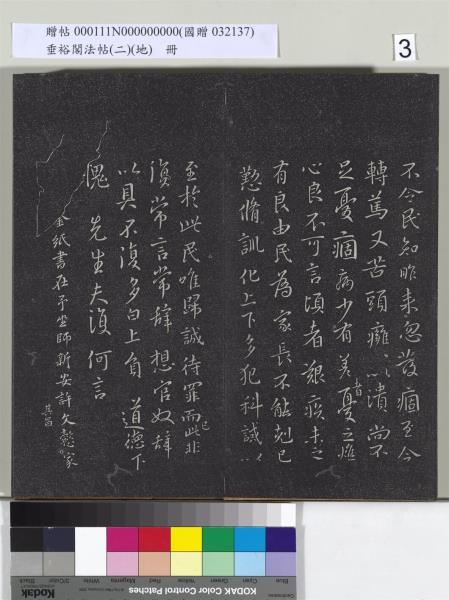 贈帖 000111N000000000(國贈 032137)
垂裕閣法帖(二)(地) 冊
3
不令民知昨來忽發痼至今
轉篤又苦頭癰以潰尚不
足憂痼病少有差者憂之燋
心良不可言頃者艱疾未之
有良由民為家長不能剋己
懃脩訓化上下多犯科誡以
至於此民唯歸誠待罪而已此非
復常言常辭想官奴辭
以具不復多白上負道德下
愧先生夫復何言
金紙書在予坐師新安許文懿家
其昌
Blue Cyan Green Yellow Red Magenta White Black
Kodak
KODAK Color Control Patches